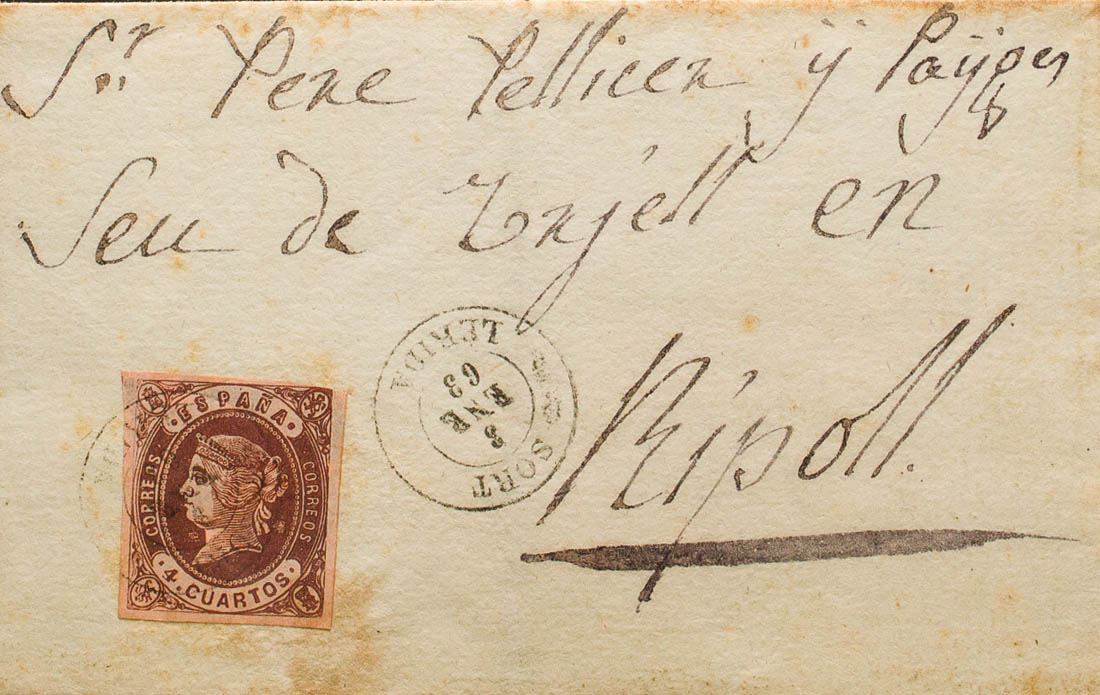 Sr Pere Pellicer ÿ Payges
Seu de Urjell en
Ripoll.
SORT
LERIDA
3
ENE
63
ESPAÑA
CORREOS
CORREOS
4. CUARTOS